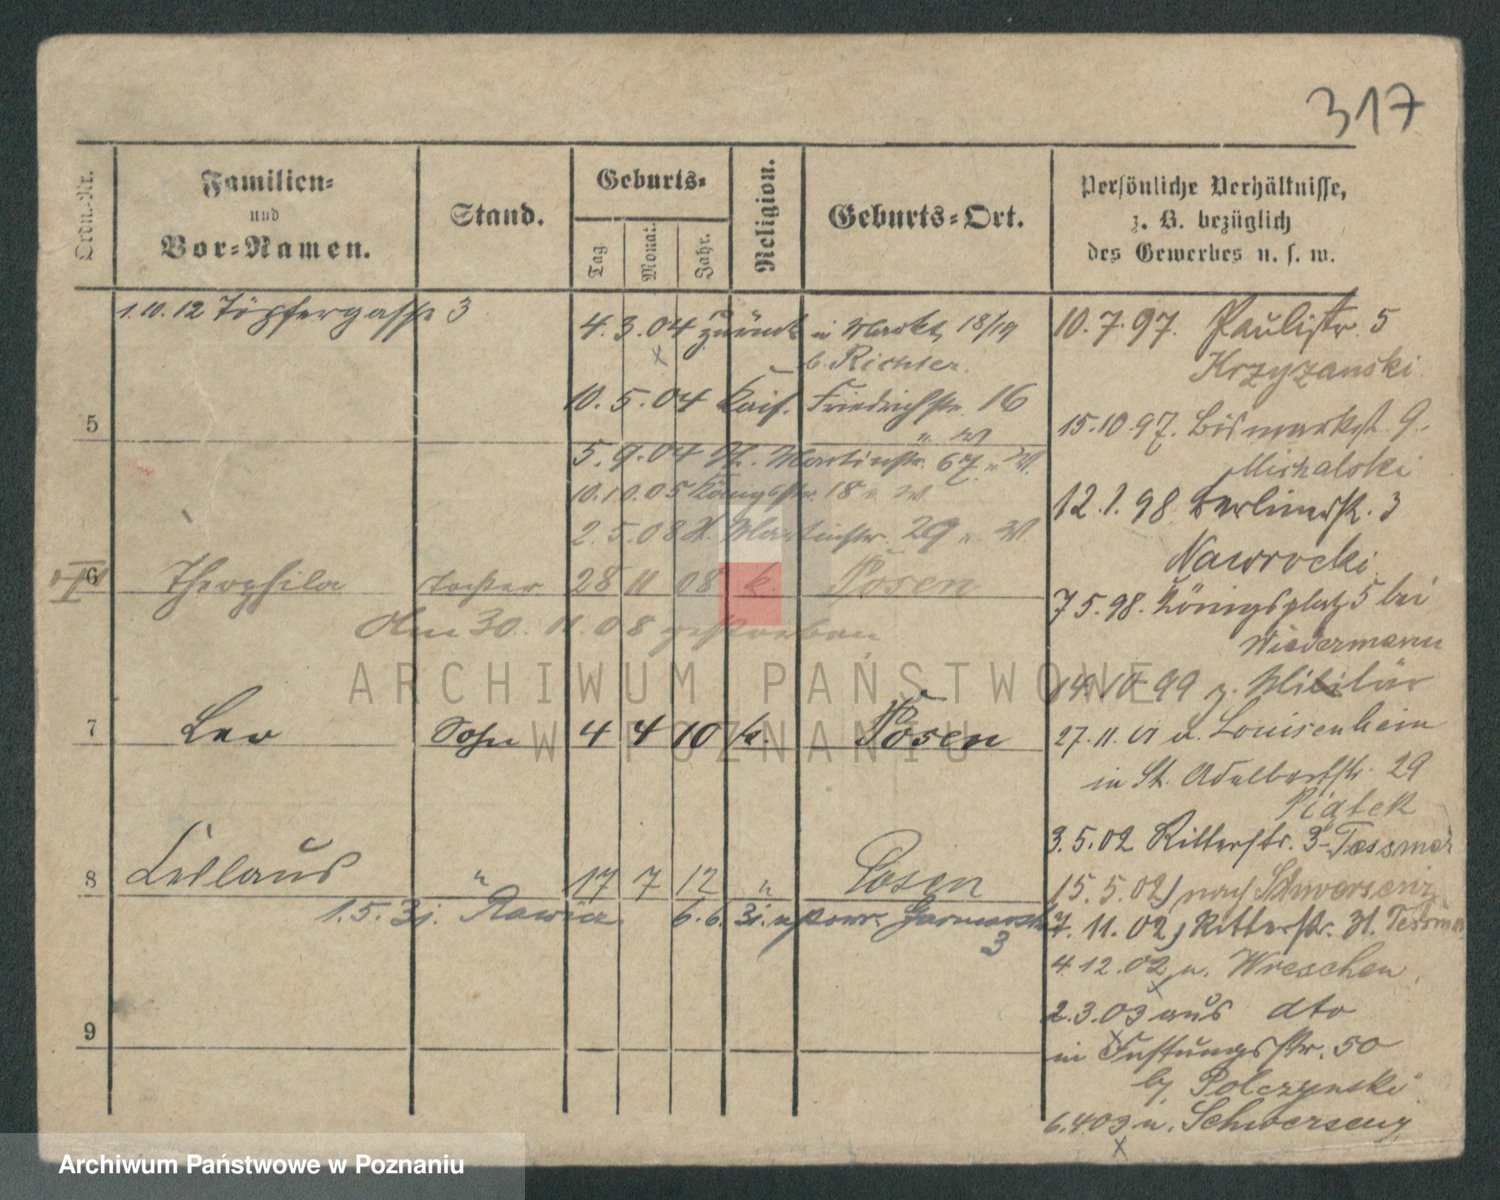 317
Ordn.-Nr.
Familien-
und
Vor-Namen.
Stand.
Geburts-
Tag
Monat.
Jahr.
Religion.
Geburts-Ort.
Persönliche Verhältnisse,
z. B. bezüglich
des Gewerbes u. s. w.
1.10.12 Töpfergasse 3
4.3.04 zurück in Markt 18/19
b. Richter.
10.5.04 Kais. Friedrichstr. 16
" W
5
5.9.04 St. Martinstr. 67 " W.
10.10.05 Königsstr. 18 " W
2.5.08 St. Martinstr. 29 " W
6 Theophila Tochter 28 11 08 k. Posen
Am 30. 11. 08 gestorben
7 Leo Sohn 4 4 10 k. Posen
8 Ceslaus " 17 7 12 " Posen
1.5. Rawicz 6.6.
3
9
10.7.97. Paulistr. 5
Krzyzanski
15.10.97. Bismarkst. 9.
Michalski
12.1.98 Berlinerstr. 3
Nawrocki
7 5.98. Königsplatz 5 bei
Wiedermann
14.10.99 z. Militär
27.11.01 v. Louisenhain
in St. Adalbertstr. 29
Piątek
3.5.02 Ritterstr. 3 Tessmer
15.5.02 nach Schwersenz
7.11.02 Ritterstr. 31. Tessmer
4.12.02 n. Wreschen
2.3.03 aus dto
in Festungsstr. 50
bj. Polczynski
6.4.03 n. Schwersenz
ARCHIWUM PAŃSTWOWE
W POZNANIU
Archiwum Państwowe w Poznaniu